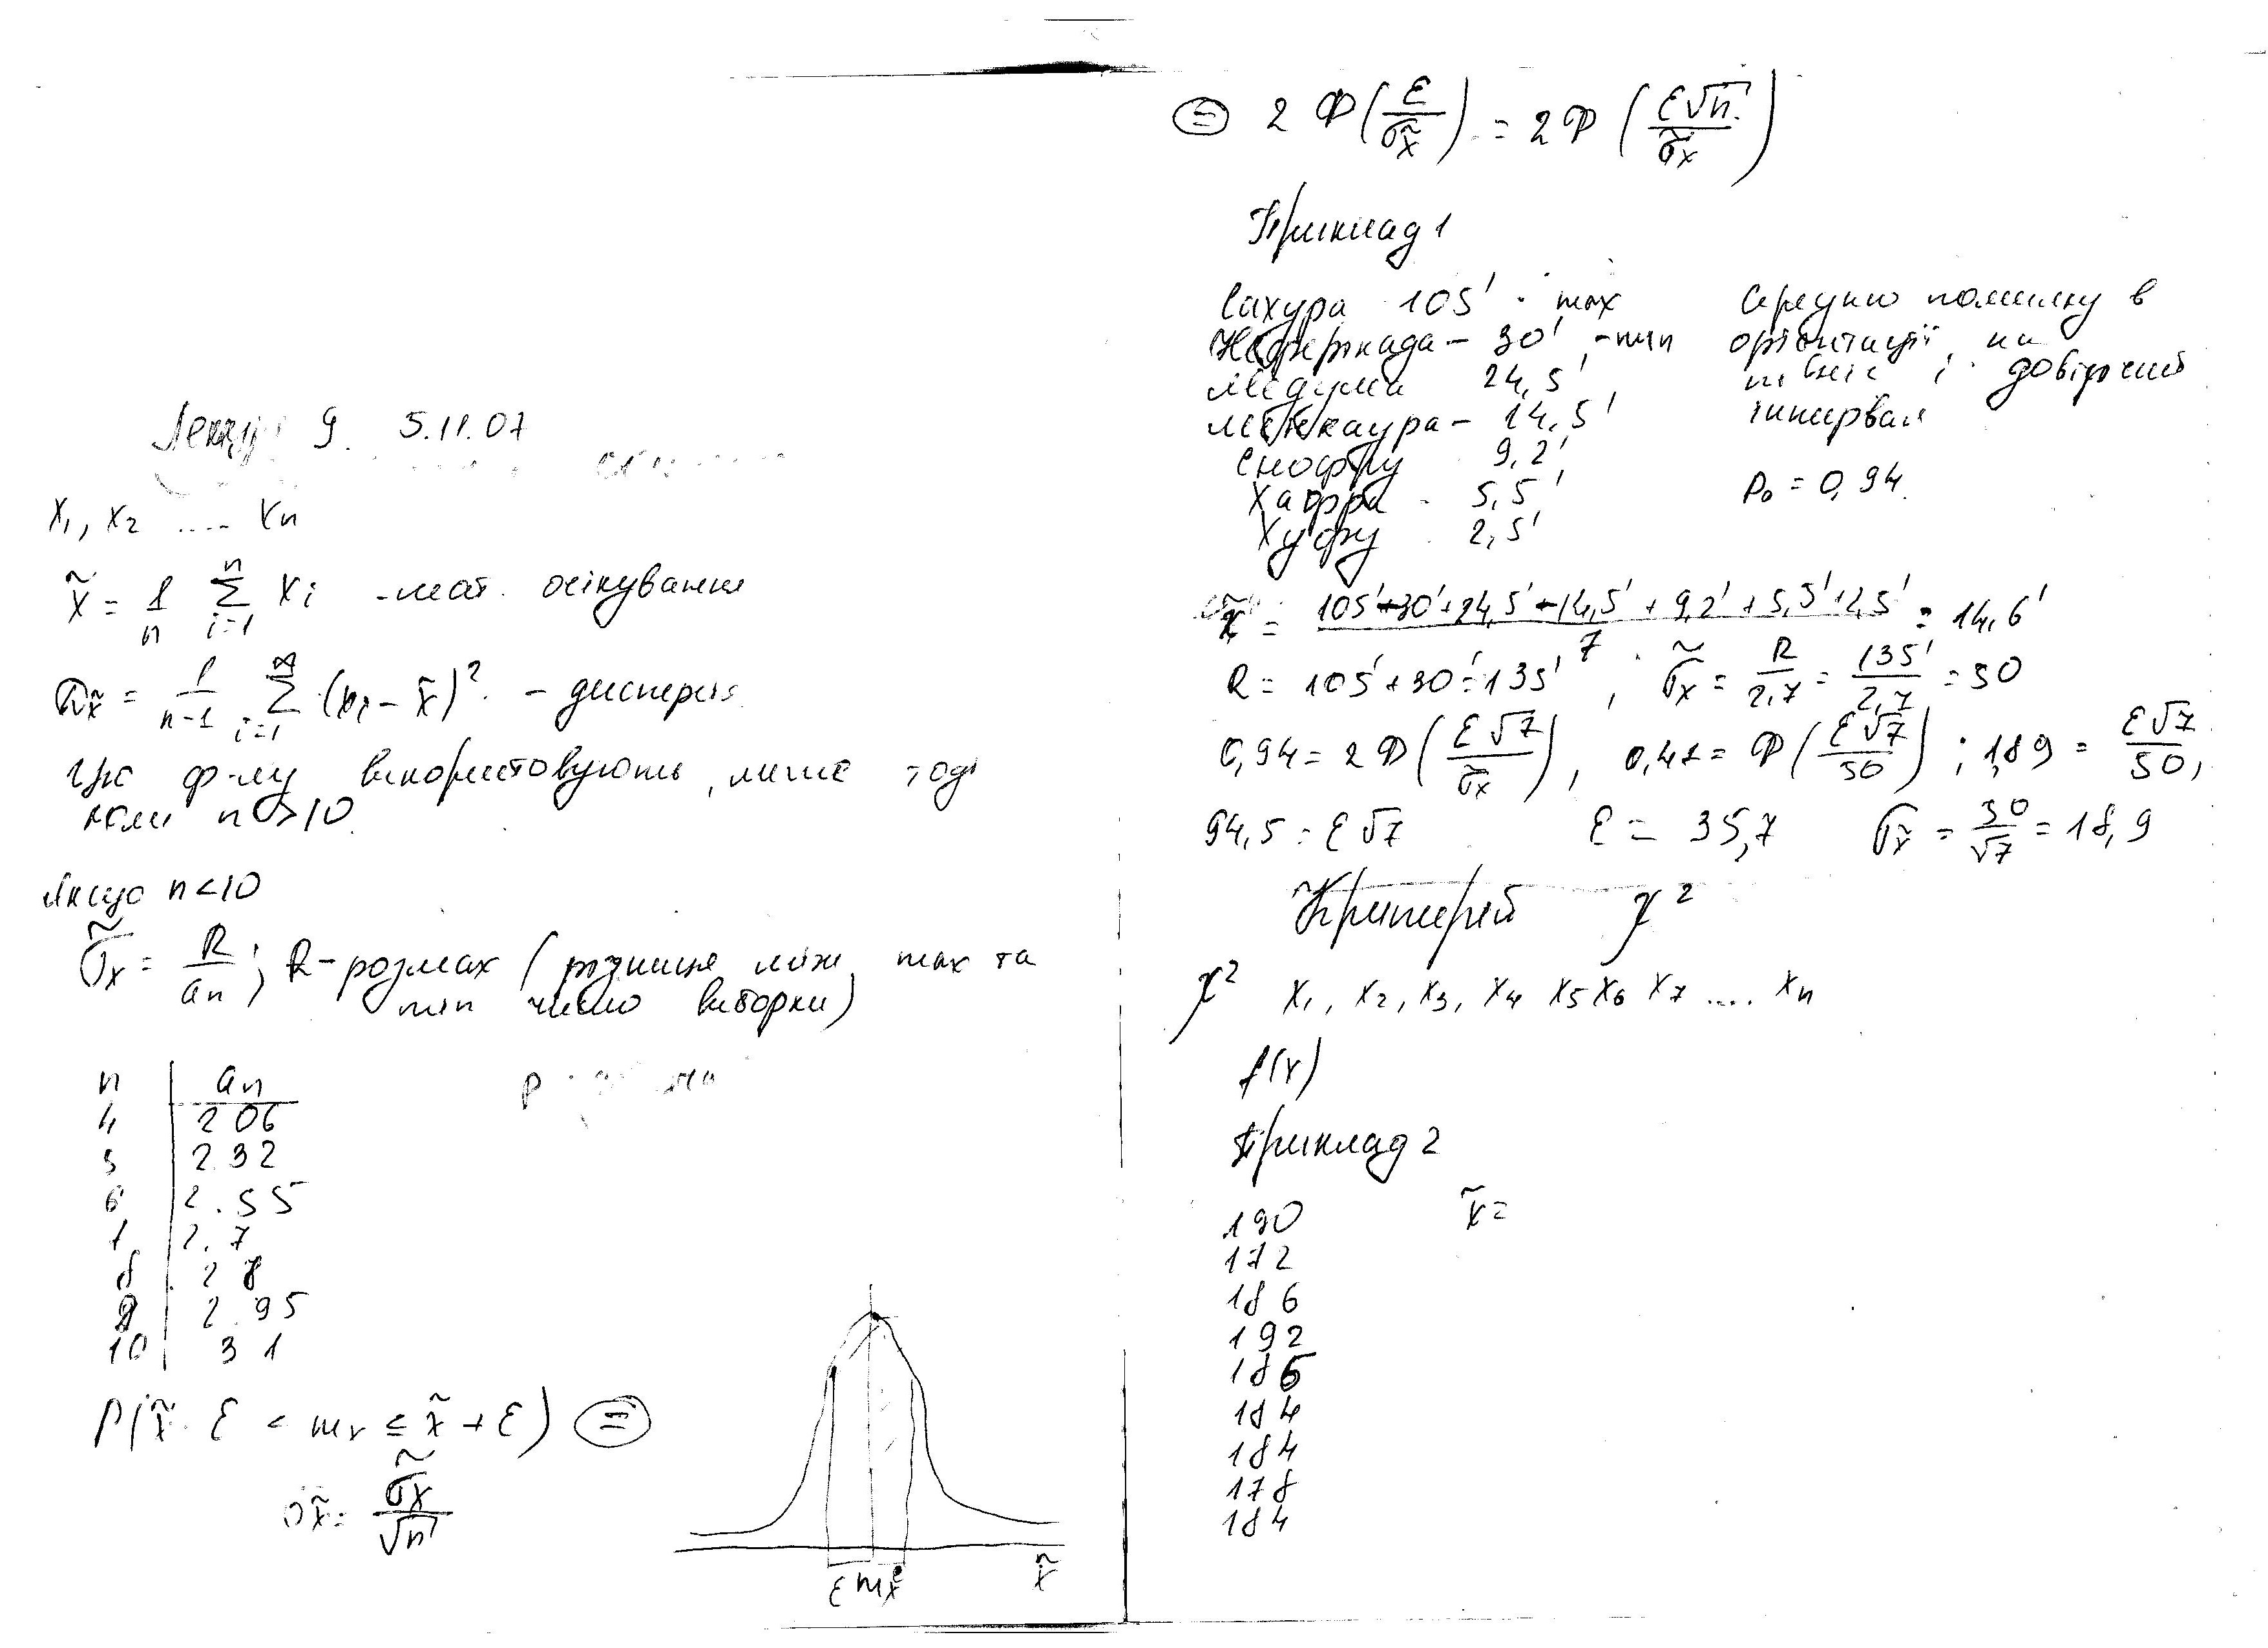 Лекція 9. 5.11.07
x₁, x₂ .... xₙ
x̃ = 1/n ∑ᵢ₌₁ⁿ xᵢ - мат. очікування
σx̃ = 1/(n-1) ∑ᵢ₌₁ (xᵢ - x̃)². - дисперсія
цю ф-лу використовують, лише тоді
коли n > 10
Якщо n < 10
σ̃x = R/aₙ; R - розмах (різниця між max та
min число виборки)
n | aₙ
4 | 2 06
5 | 2.32
6 | 2.55
7 | 2.7
8 | 2 8
9 | 2.95
10 | 3 1
P(x̃ - ε < mx ≤ x̃ + ε) ⊜
σx̃ = σ̃x/√n
ε mx ε x̃
⊜ 2 Ф(ε/σx̃) = 2Ф(ε√n/σ̃x)
Приклад 1
Сахура 105' - max
Неферікада - 30' - min
Медума 24,5'
Менкаура - 14,5'
Снофру 9,2'
Хафра - 5,5'
Хуфу 2,5'
Середню помилку в
орієнтації на
північ і довірчий
інтервал
P₀ = 0,94
x̃ = (105'-30'+24,5'-14,5'+9,2'+5,5'+2,5')/7 = 14,6'
R = 105'+30'=135', σ̃x = R/2,7 = 135'/2,7 = 50
0,94 = 2Ф(ε√7/σ̃x), 0,47 = Ф(ε√7/50); 1,89 = ε√7/50,
94,5 = ε√7 ε = 35,7 σx̃ = 50/√7 = 18,9
Критерій χ²
χ² x₁, x₂, x₃, x₄ x₅ x₆ x₇ .... xₙ
f(x)
Приклад 2
190 x̃ =
172
186
192
186
184
184
178
184